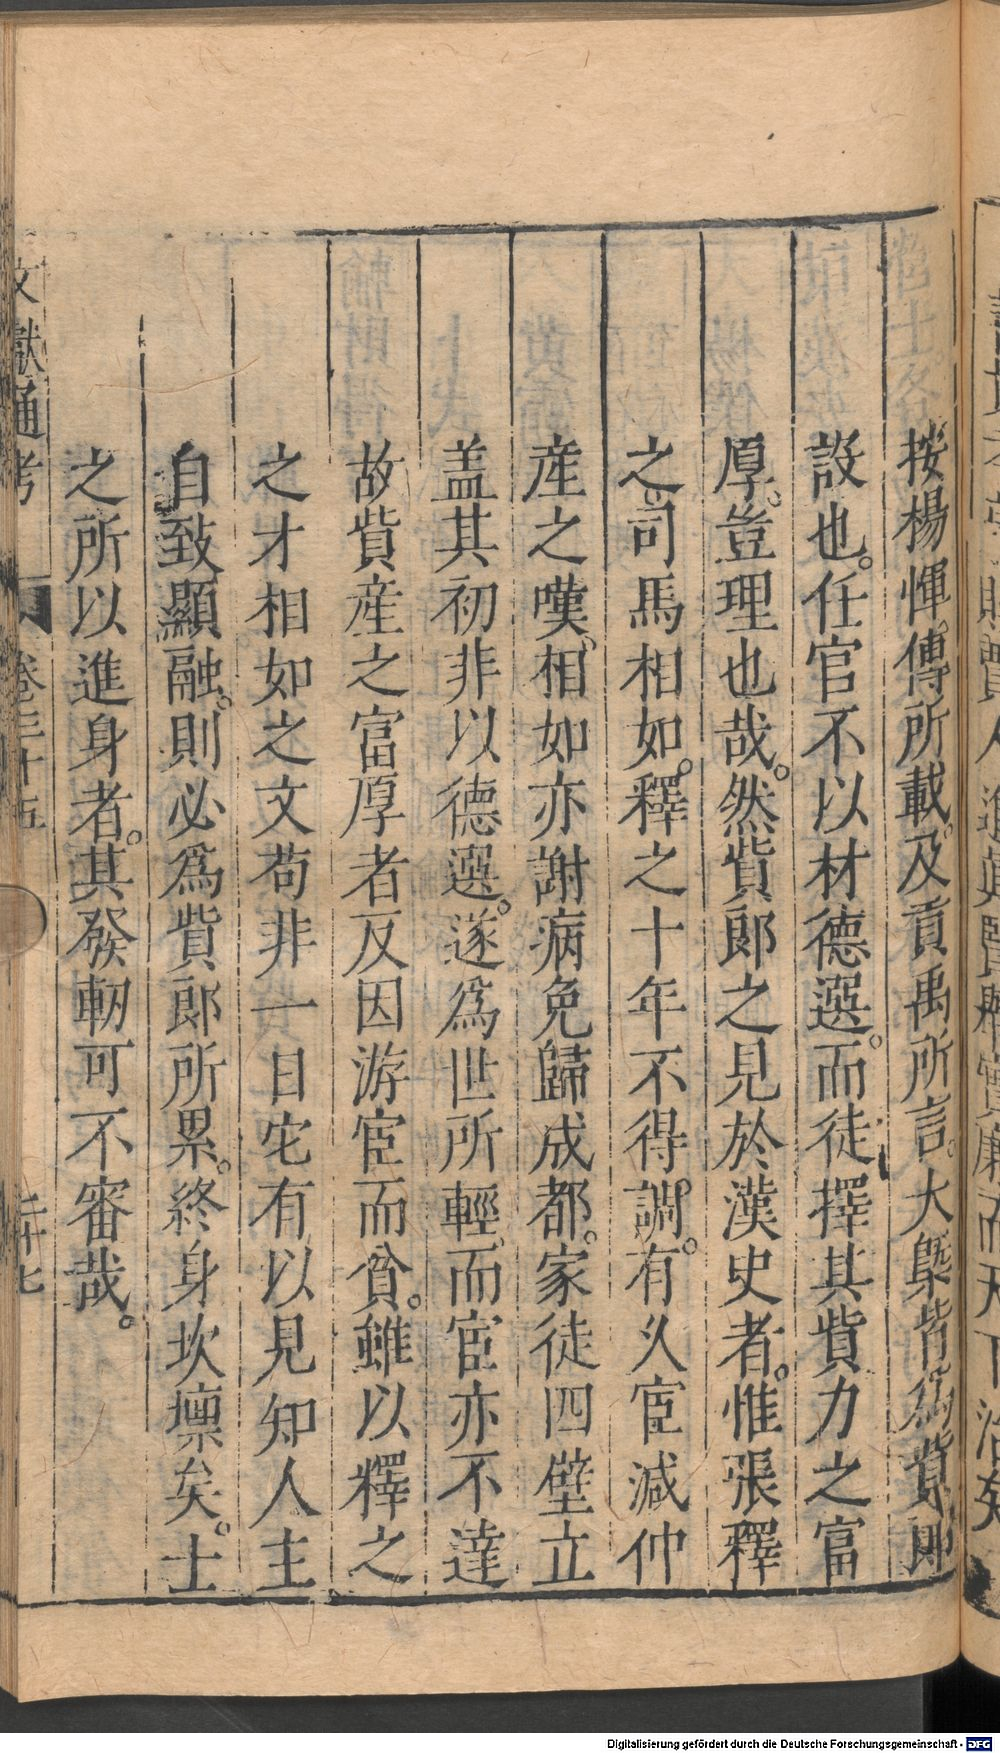 按楊惲傳所載及貢禹所言。大槩皆爲貲郎
設也。任官不以材德選。而徒擇其貲力之富
厚。豈理也哉。然貲郎之見於漢史者。惟張釋
之。司馬相如。釋之十年不得調。有久宦减仲
産之嘆。相如亦謝病免歸成都。家徒四壁立
盖其初非以德選。遂爲世所輕。而宦亦不達
故貲産之富厚者反因游宦而貧。雖以釋之
之才相如之文苟非一日它有以見知人主
自致顯融。則必爲貲郎所累。終身坎壈矣。士
之所以進身者。其發軔可不審哉。
文獻通考 卷三十五 二十七
Digitalisierung gefördert durch die Deutsche Forschungsgemeinschaft - DFG